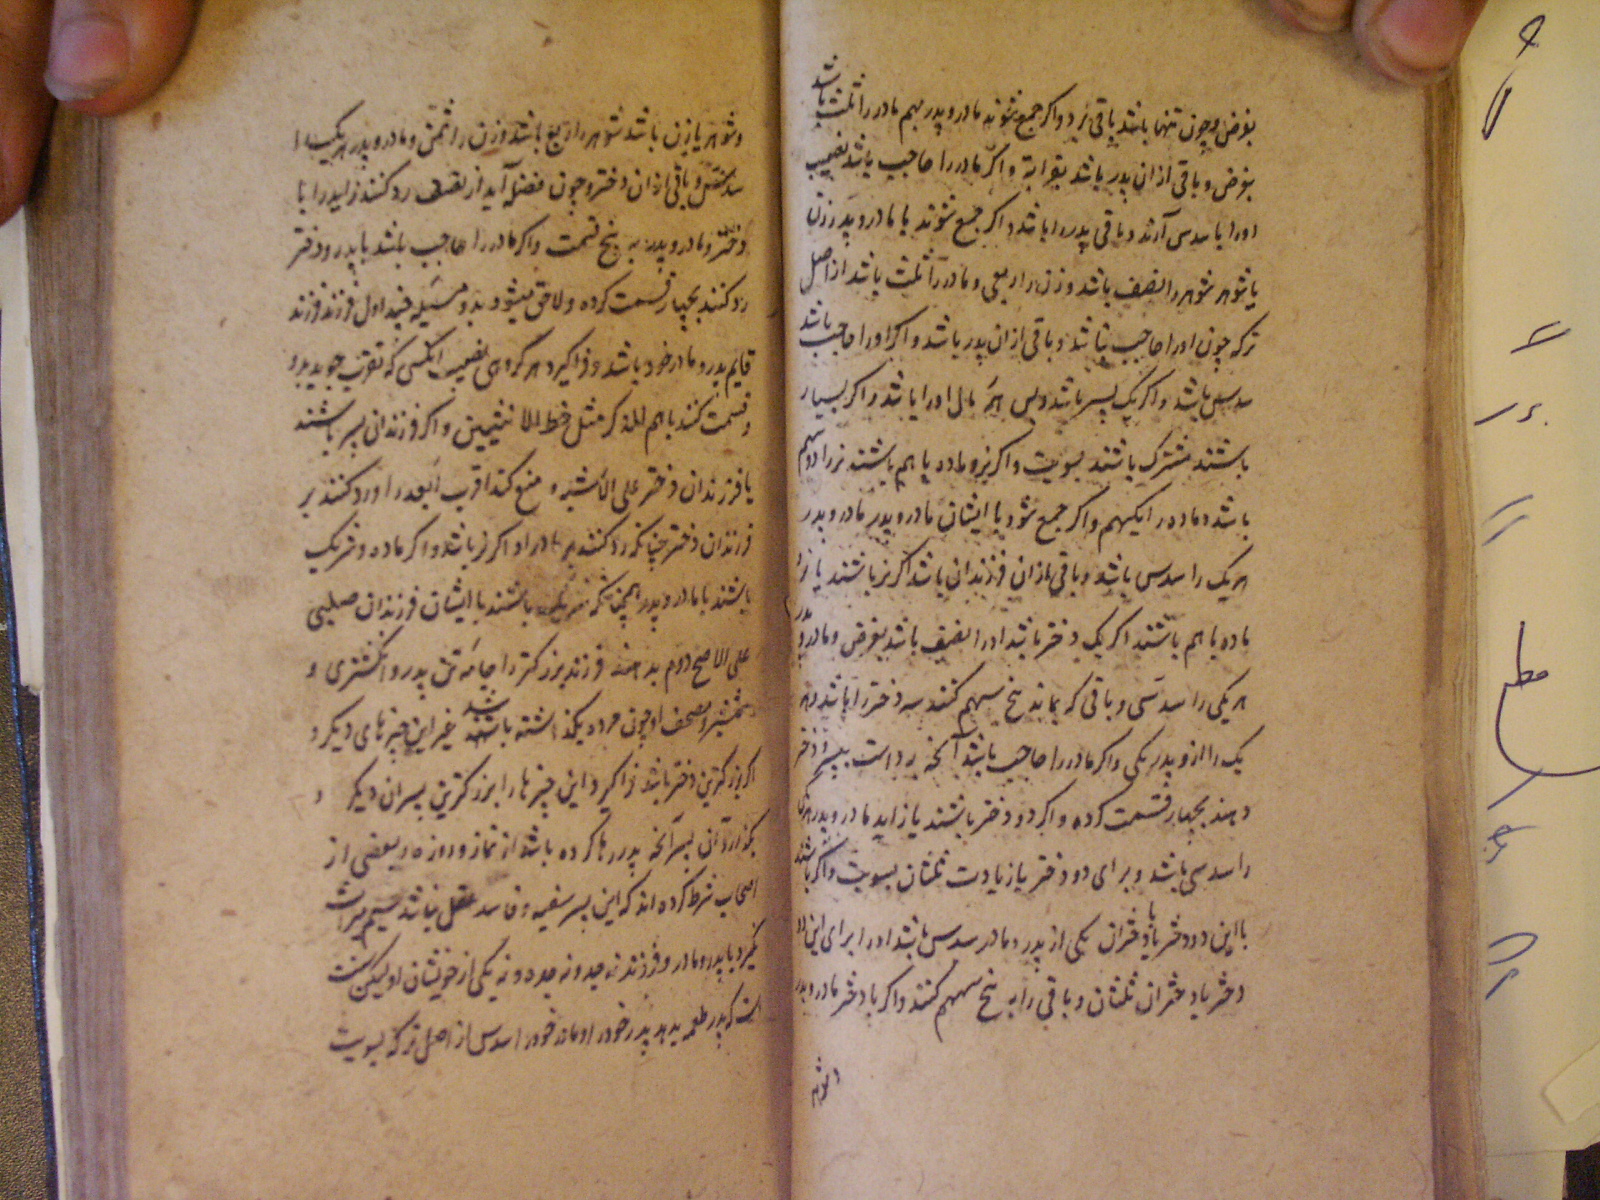 بفرض و چون تنها باشد باقی برد و اگر جمع شوند مادر و پدر بهم مادر را ثلث باشد
بفرض و باقی از ان پدر باشد بقرابة و اگر مادر را حاجب باشد نصیب
او را با سدس آرند و باقی پدر را باشد و اگر جمع شوند با مادر و پدر زن
یا شوهر شوهر را نصف باشد و زن را ربعی و مادر را ثلث باشد از اصل
ترکه چون او را حاجب نباشد و باقی از ان پدر باشد و اگر او را حاجب باشد
سدس باشد و اگر یک پسر باشد و بس همه مال او را باشد و اگر بسیار
باشند مشترک باشند بسویت و اگر نر و ماده با هم باشند نر را دو سهم
باشد و ماده را یکسهم و اگر جمع شود با ایشان مادر و پدر مادر و پدر
هر یک را سدس باشد و باقی از ان فرزندان باشد اگر نر باشند یا نر و
ماده با هم باشند اگر یک دختر باشد او را نصف باشد بفرض و مادر و پدر
هر یکی را سدسی و باقی که بماند پنج سهم کنند سه دختر را باشد و هر
یک را از و پدر یکی و اگر مادر را حاجب باشد آنچه رد است بپدر و دختر
دهند بچهار قسمت کرده و اگر دو دختر باشند یا زاید مادر و پدر هر یکی
را سدسی باشد و برای دو دختر یا زیادت ثلثان بسویت و اگر باشد
با این دو دختر یا دختران یکی از پدر و مادر سدس باشد او را برای این دو
دختر یا دختران ثلثان و باقی را به پنج سهم کنند و اگر با دختر مادر و پدر
و شوهر
و شوهر یا زن باشد شوهر را ربع باشد و زن را ثمن و مادر و پدر هر یک را
سدس و باقی از ان دختر و چون فضله آید از نصف رد کنند زاید را با
دختر و مادر و پدر به پنج قسمت و اگر مادر را حاجب باشد با پدر و دختر
رد کنند بچهار قسمت کرده و لاحق میشود بدو مسئله چند اول فرزند فرزند
قایم پدر و مادر خود باشد و فراگیرد هر گروهی نصیب انکسی که تقرب جوید بدو
و قسمت کنند با هم للذکر مثل حظ الانثیین و اگر فرزندان پسر باشند
یا فرزندان دختر علی الاشبه و منع کند اقرب ابعد را و رد کنند بر
فرزندان دختر چنانکه رد کنند بر مادر او اگر نر باشد و اگر ماده و شریک
باشند با مادر و پدر همچنانکه شریک باشند با ایشان فرزندان صلبی
علی الاصح دوم بدهند فرزند بزرگتر را جامه تن پدر و انگشتری و
شمشیر و مصحف او چون مرده بگذاشته باشد غیر این چیزهای دیگر و
اگر بزرگترین دختر باشد فراگیرد این چیزها را بزرگترین پسران دیگر و
بگذارد آن پسر آنچه پدر رها کرده باشد از نماز و روزه و بعضی از
اصحاب شرط کرده اند که این پسر سفیه و فاسد عقل نباشد سیم میراث
نگیرد با پدر و مادر و فرزند نه جد و نه جده و نه یکی از خویشان او لیکن سنت
است که پدر طعمه بدهد پدر خود را و مادر خود را سدس از اصل ترکه بسویت